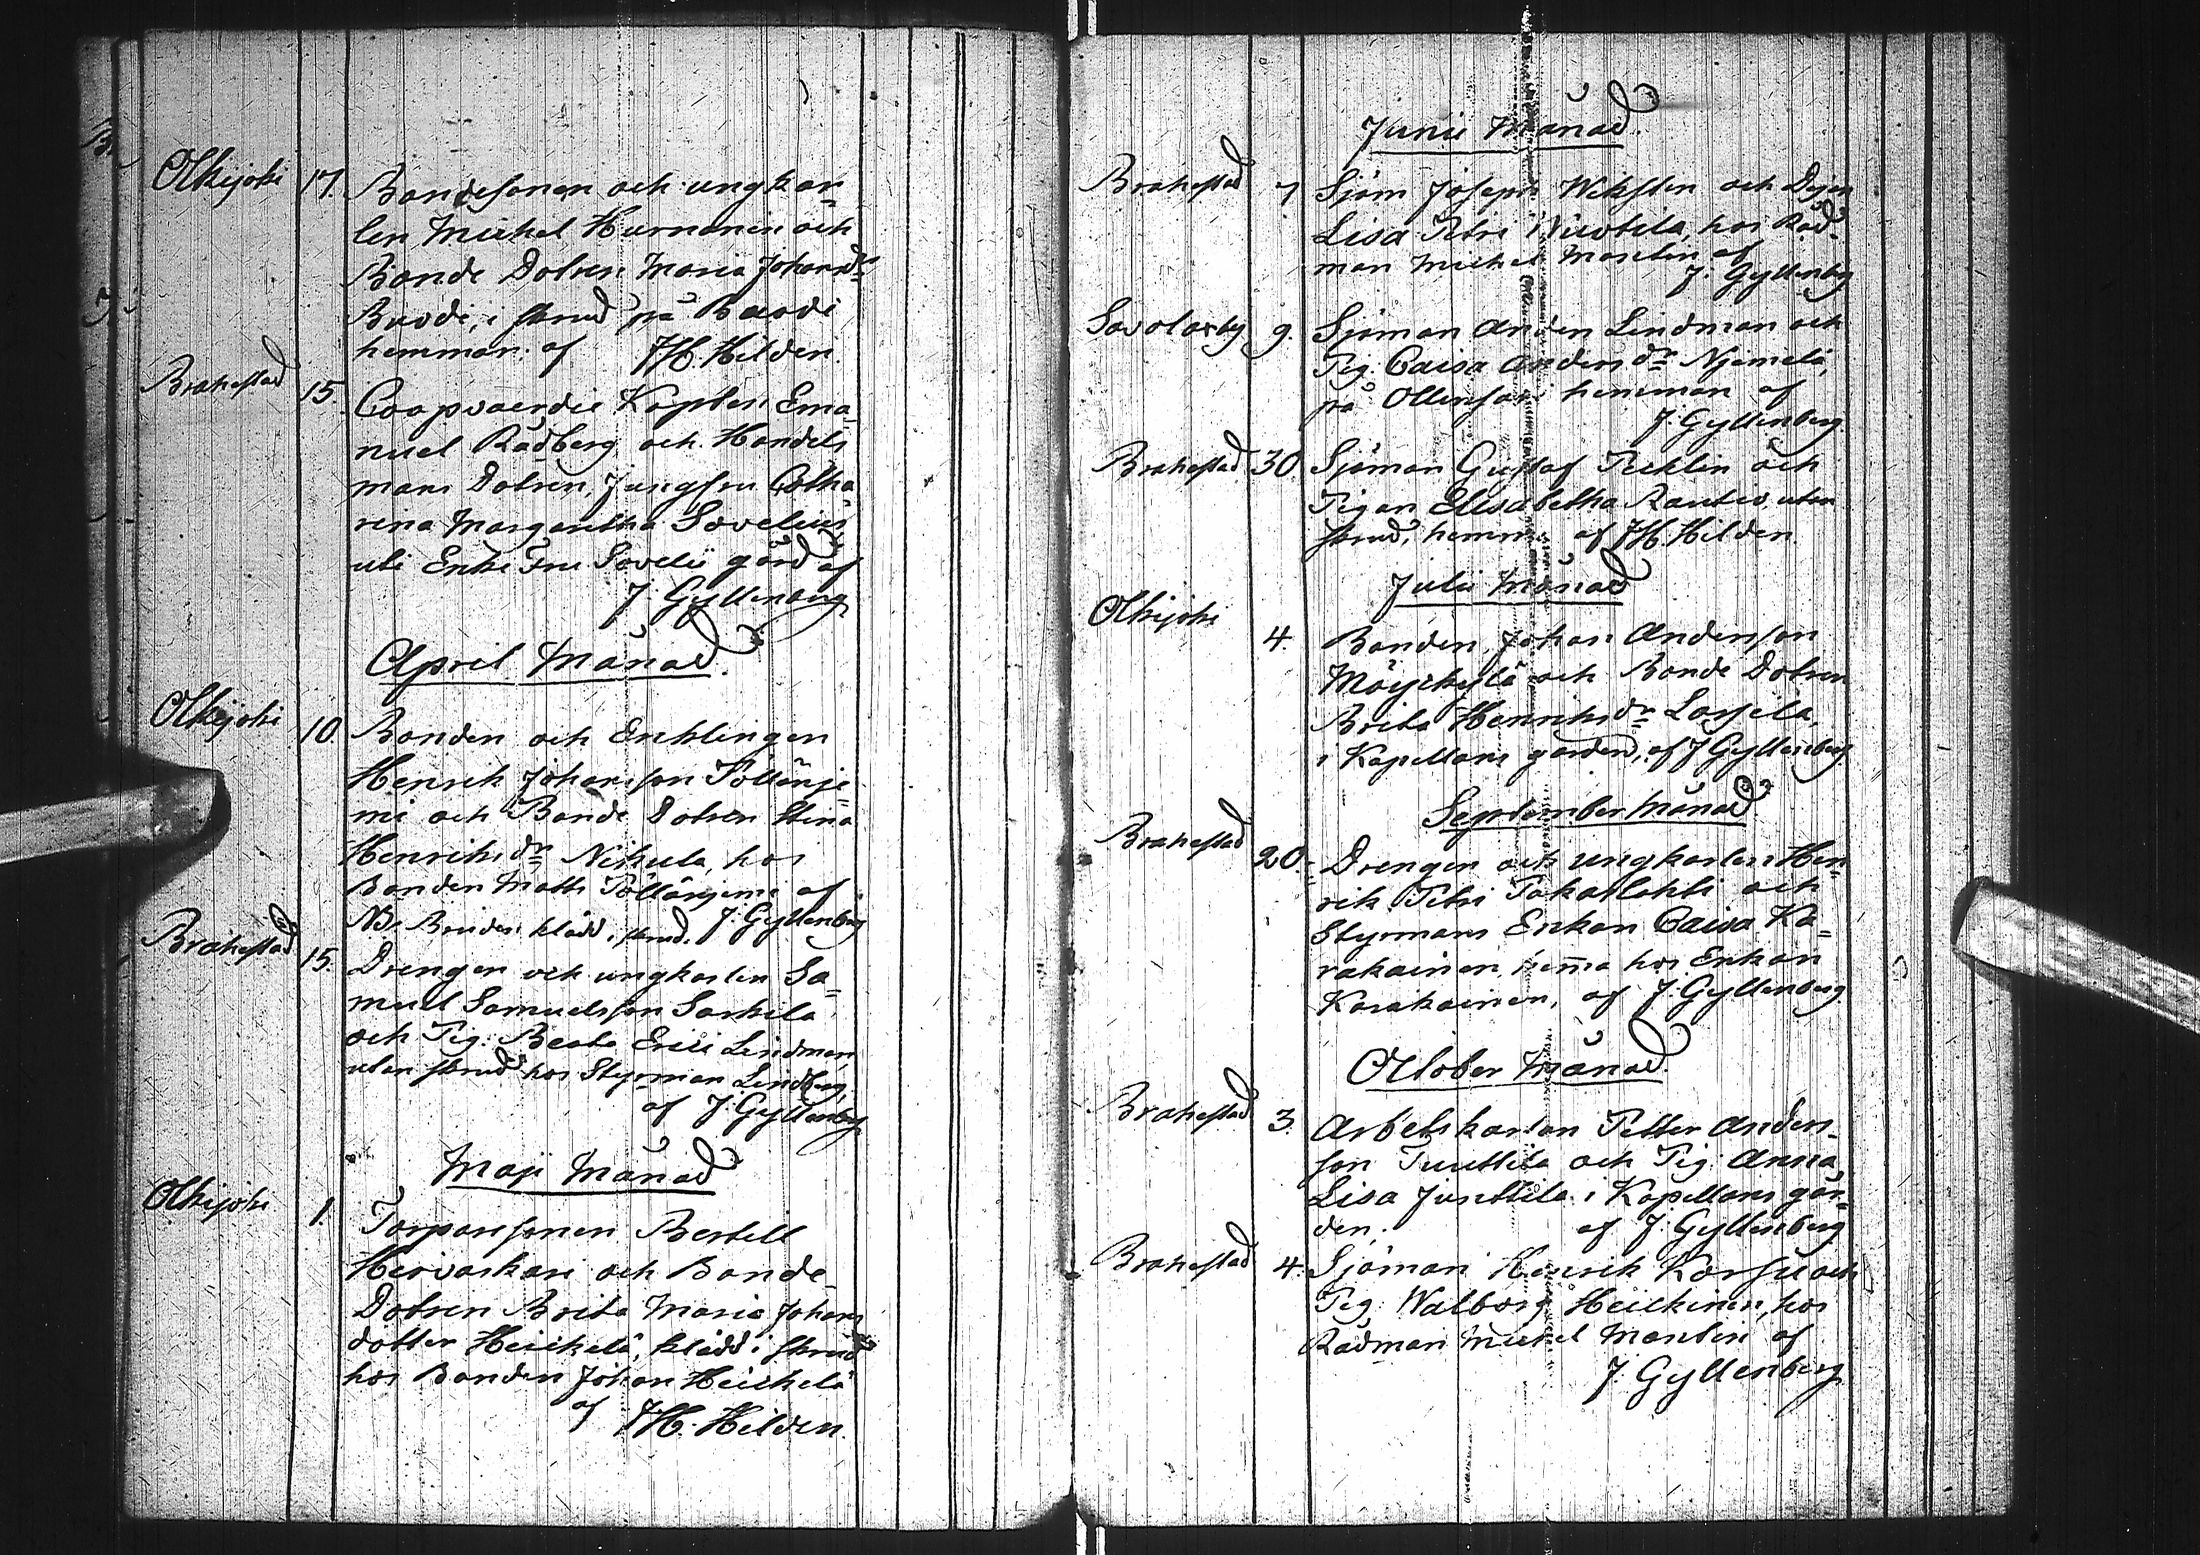 Olkijoki 17. Bondesonen och ungkar=
len Michel Hurnanen och
Bonde Dotren Maria Johansdr
Buvdi, i skrud på Buvdi
hemman af JH. Hilden
Brahestad 15. Coopvaerdie Kapten Ema
nuel Rådberg och Handels
mans Dotren, Jungfru Catha
rina Margaretha Sovelius
uti Enke Fru Sovelii gård af
J. Gyllenberg
April Månad.
Olkijoki 10. Bonden och Enklingen
Henrik Johansson Pöllänje=
mi och Bonde Dotren Stina
Henriksdr Nikula, hos
Bonden Matts Pöllänjemi af
NB. Bruden klädd i skrud. J. Gyllenberg
Brahestad 15. Drengen och ungkarlen Sa=
muel Samuelsson Sarkela
och Pig. Beata Erici Lindman,
utan skrud hos Styrman Lindberg,
af J. Gyllenberg
Maji Månad
Olkijoki 1. Torparesonen Bertill
Hiirvaskari och Bonde-
Dotren Brita Maria Johans
dotter Heickilä, klädd i skrud
hos Bonden Johan Heickilä
af JH. Hilden.
Junii Månad.
Brahestad 7 Sjöm Joseph Wekstén och Dejan
Lisa Petri hos Råd=
man Michel Montin af
J. Gyllenberg
Savolaxby 9. Sjöman Anders Lindman och
Pig. Caisa Andersdr Njemelä,
på Ollinsari hemman af
J. Gyllenberg
Brahestad 30. Sjöman Gustaf Pecklin och
Pigan Elisabetha Rautio, utan
skrud, hemma af JH. Hilden.
Julii Månad
Olkijoki 4. Bonden Johan Andersson
Möyckylä och Bonde Dotren
Brita Henriksdr Lassila,
i Kapellans gården, af J Gyllenberg
September Månad.
Brahestad 20. Drengen och ungkarlen Hen=
rik Petri Tokaslahti och
Styrmans Enkan Caisa Ka=
rakainen, hemma hos Enkan
Karakainen, af J. Gyllenberg
October Månad.
Brahestad 3. Arbetskarlen Petter Anders-
son Tuuttila och Pig. Anna
Lisa Junttila i Kapellans går=
den. af J. Gyllenberg
Brahestad 4. Sjöman Henrik Korsu och
Pig. Walborg Heickinen, hos
Rådman Michel Montin af
J. Gyllenberg